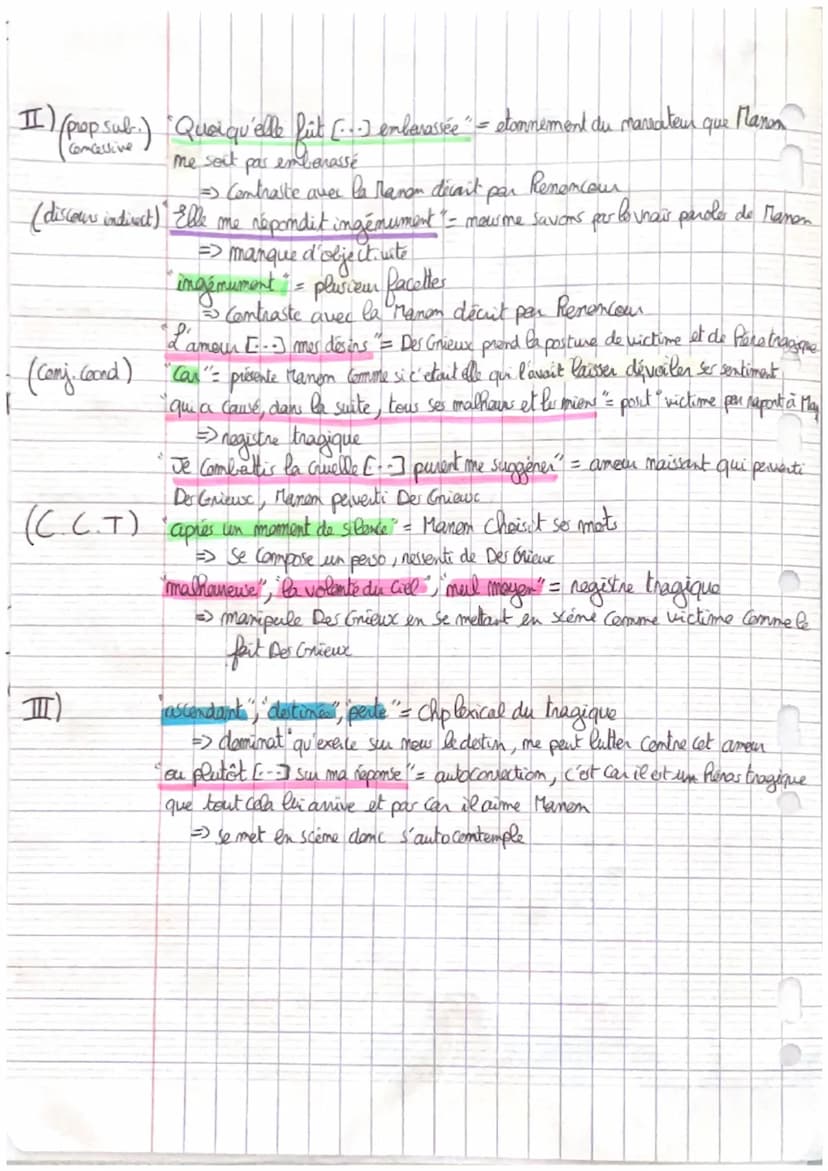 II) (prop sub. concessive) "Quoiqu'elle fût [...] embarassée" = etonnement du narrateur que Manon
ne soit pas embarassé
=> Contraste avec la Manon décrit par Renoncour
(discours indirect) "Elle me répondit ingénument" = nous ne savons pas les vrais paroles de Manon
=> manque d'objectivité
"ingénument" = plusieur facettes
=> Contraste avec la Manon décrit par Renoncour
"L'amour [...] mes désirs" = Des Grieux prend la posture de victime et de héros tragique
(Conj. Coord) "Car" = présente Manon comme si c'etait elle qui l'avait laisser dévoiler ses sentiment
"qui a causé, dans la suite, tous ses malheurs et les miens" = posit° victime par rapport à
=> registre tragique
"Je combattis la cruelle [...] purent me suggérer" = amour naissant qui perverti
Des Grieux, Manon perverti Des Grieux
(C.C.T) "après un moment de silence" = Manon choisit ses mots
=> Se compose un perso, ressenti de Des Grieux
"malheureuse", "la volonté du Ciel", "nul moyen" = registre tragique
=> manipule Des Grieux en se mettant en scène comme victime comme le
fait Des Grieux
III) "ascendant", "destinée", "perte" = chp lexical du tragique
=> dominat° qu'exerce sur nous le destin, ne peut lutter contre cet amour
"ou plutôt [...] sur ma réponse" = autocorrection, c'est car il est un héros tragique
que tout cela lui arrive et pas car il aime Manon
=> se met en scène donc s'autocontemple